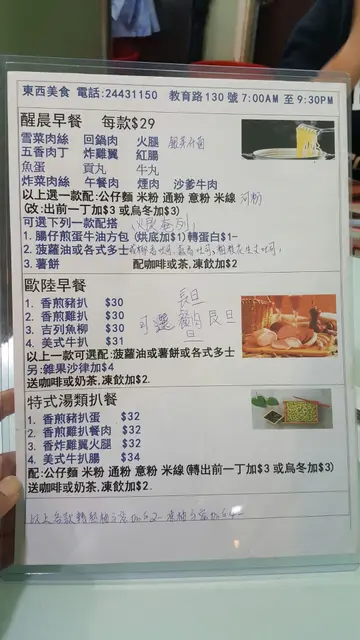 東西美食 電話:24431150 教育路130號 7:00AM 至 9:30PM
醒晨早餐 每款$29
雪菜肉絲 回鍋肉 火腿
五香肉丁 炸雞翼 紅腸
魚蛋 貢丸 牛丸
炸菜肉絲 午餐肉 煙肉 沙爹牛肉
以上選一款配:公仔麵 米粉 通粉 意粉 米線 河粉
(改:出前一丁加$3 或烏冬加$3)
可選下列一款配搭
1. 腸仔煎蛋牛油方包 (烘底加$1) 轉蛋白$1-
2. 菠蘿油或各式多士
3. 薯餅 配咖啡或茶,凍飲加$2
歐陸早餐
1. 香煎豬扒 $30
2. 香煎雞扒 $30
3. 吉列魚柳 $30
4. 美式牛扒 $31
可選 腸旦 餐肉旦 艮旦
以上一款可選配:菠蘿油或薯餅或各式多士
另:雜果沙律加$4
送咖啡或奶茶,凍飲加$2.
特式湯類扒餐
1. 香煎豬扒蛋 $32
2. 香煎雞扒餐肉 $32
3. 香炸雞翼火腿 $32
4. 美式牛扒腸 $34
配:公仔麵 米粉 通粉 意粉 米線(轉出前一丁加$3 或烏冬加$3)
送咖啡或奶茶,凍飲加$2.